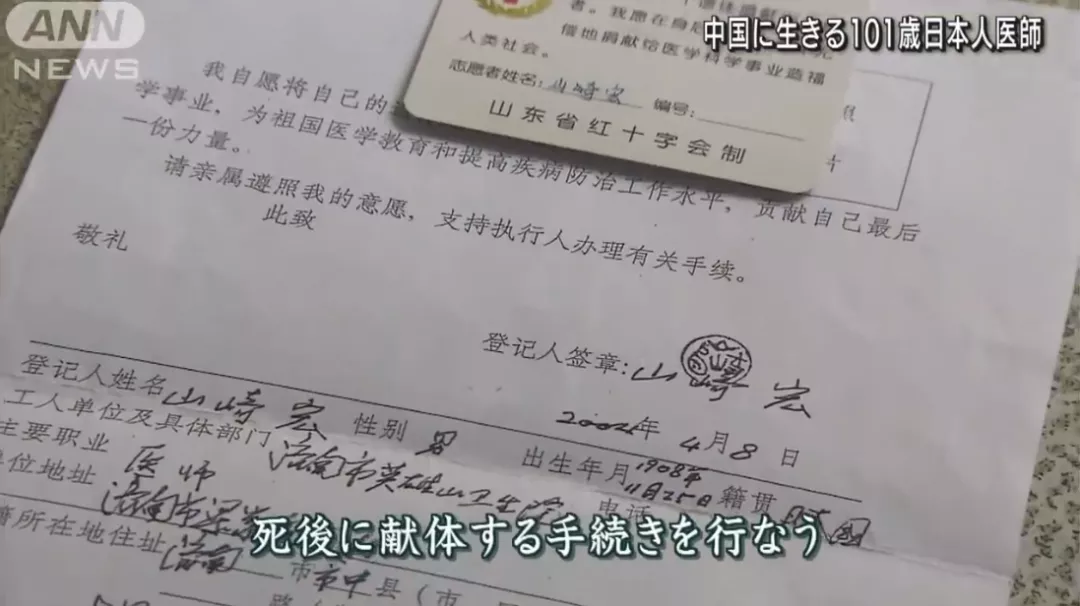 ANN
NEWS
中国に生きる101歳日本人医師
者。我愿在身后
偿地捐献给医学科学事业造福
人类社会。
志愿者姓名:山崎宏 编号:
山东省红十字会制
照
片
我自愿将自己的
学事业，为祖国医学教育和提高疾病防治工作水平，贡献自己最后
一份力量。
请亲属遵照我的意愿，支持执行人办理有关手续。
此致
敬礼
登记人签章:山崎宏
年4月8日
登记人姓名 山崎宏 性别 男 出生年月 1908年11月25日 籍贯 日本国
工人单位及具体部门 济南市英雄山卫生院 电话
主要职业 医师
单位地址 济南市
籍所在地住址 济南 市 市中 县（市
死後に献体する手続きを行なう